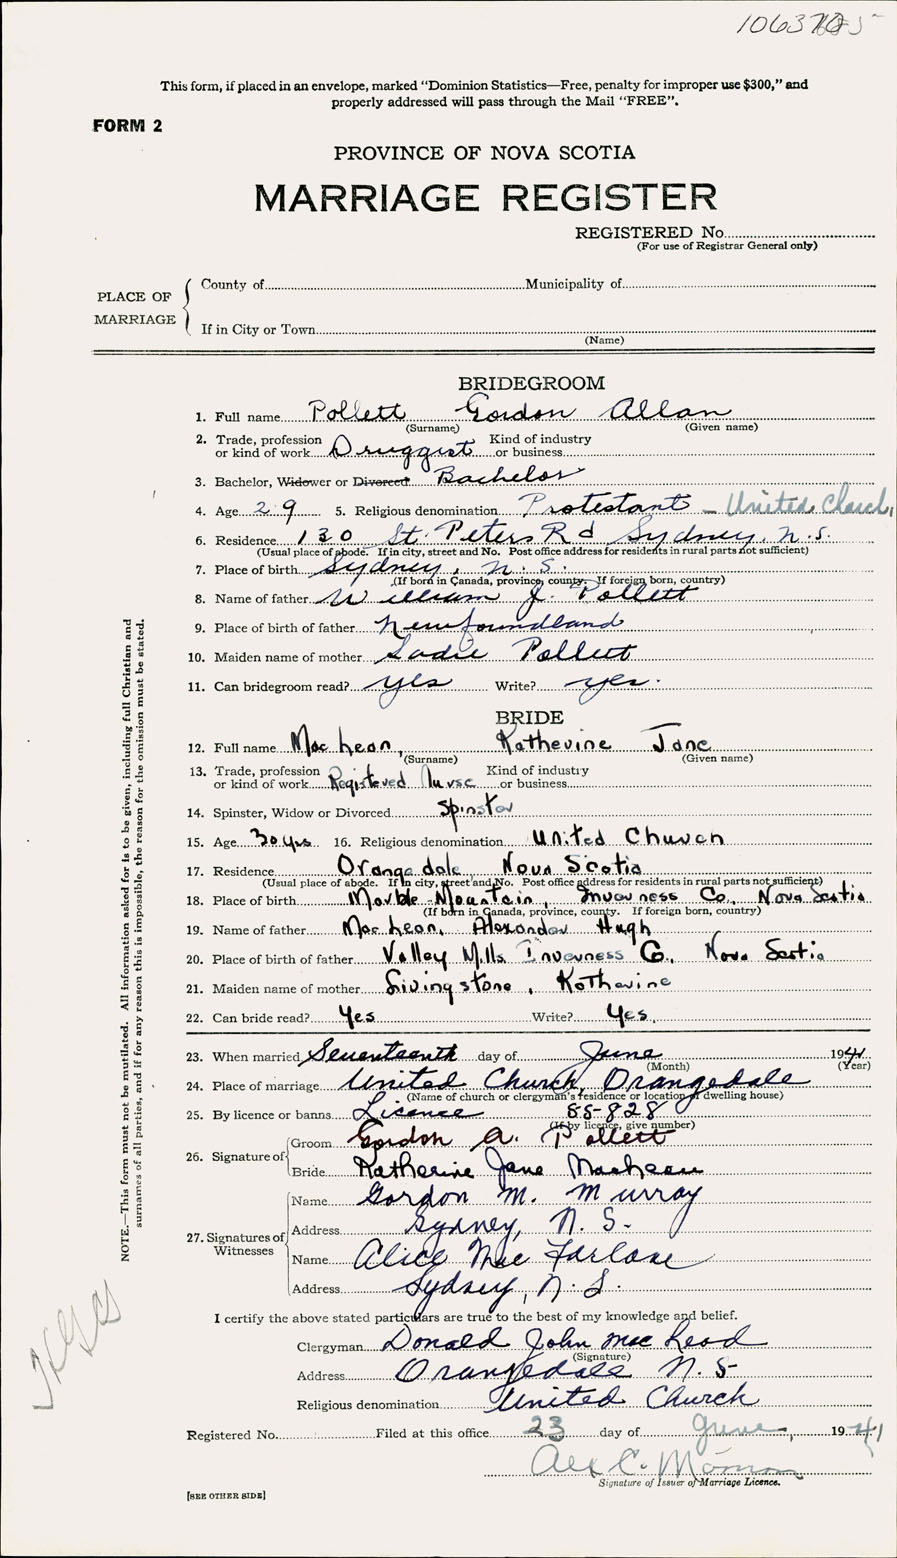 This form, if placed in an envelope, marked "Dominion Statistics—Free, penalty for improper use $300," and
properly addressed will pass through the Mail "FREE".
FORM 2
PROVINCE OF NOVA SCOTIA
MARRIAGE REGISTER
REGISTERED No.
(For use of Registrar General only)
PLACE OF MARRIAGE
County of Municipality of
If in City or Town
(Name)
BRIDEGROOM
1. Full name Pollett Gordon Allan
(Surname) (Given name)
2. Trade, profession or kind of work Druggist Kind of industry or business
3. Bachelor, Widower or Divorced Bachelor
4. Age 29 5. Religious denomination Protestant - United Church
6. Residence 130 St. Peters Rd Sydney, N.S.
(Usual place of abode. If in city, street and No. Post office address for residents in rural parts not sufficient)
7. Place of birth Sydney, N.S.
(If born in Canada, province, county. If foreign born, country)
8. Name of father William J. Pollett
9. Place of birth of father Newfoundland
10. Maiden name of mother Sadie Pollett
11. Can bridegroom read? yes Write? yes.
BRIDE
12. Full name MacLean, Katherine Jane
(Surname) (Given name)
13. Trade, profession or kind of work Registered Nurse Kind of industry or business
14. Spinster, Widow or Divorced Spinster
15. Age 30 yrs 16. Religious denomination United Church
17. Residence Orangedale, Nova Scotia
(Usual place of abode. If in city, street and No. Post office address for residents in rural parts not sufficient)
18. Place of birth Marble Mountain, Inverness Co., Nova Scotia
(If born in Canada, province, county. If foreign born, country)
19. Name of father MacLean, Alexander Hugh
20. Place of birth of father Valley Mills Inverness Co., Nova Scotia
21. Maiden name of mother Livingstone, Katherine
22. Can bride read? Yes Write? Yes.
23. When married Seventeenth day of June 1941
(Month) (Year)
24. Place of marriage United Church, Orangedale
(Name of church or clergyman's residence or location of dwelling house)
25. By licence or banns Licence 85-828
(If by licence, give number)
26. Signature of Groom Gordon A. Pollett
Bride Katherine Jane MacLean
27. Signatures of Witnesses
Name Gordon M. Murray
Address Sydney, N.S.
Name Alice MacFarlane
Address Sydney, N.S.
I certify the above stated particulars are true to the best of my knowledge and belief.
Clergyman Donald John MacLeod
(Signature)
Address Orangedale N.S.
Religious denomination United Church
Registered No. Filed at this office 23 day of June, 1941
Alex C.
Signature of Issuer of Marriage Licence.
[SEE OTHER SIDE]
NOTE.—This form must not be mutilated. All information asked for is to be given, including full Christian and
surnames of all parties, and if for any reason this is impossible, the reason for the omission must be stated.